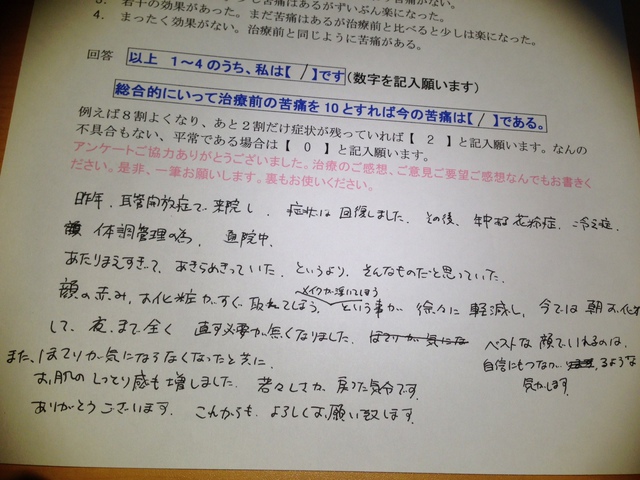 3. 若干の効果があった。まだ苦痛はあるが治療前と比べると少しは楽になった。
4. まったく効果がない。治療前と同じように苦痛がある。
回答 以上 1~4のうち、私は【 / 】です(数字を記入願います)
総合的にいって治療前の苦痛を10とすれば今の苦痛は【 / 】である。
例えば8割よくなり、あと2割だけ症状が残っていれば【 2 】と記入願います。なんの
不具合もない、平常である場合は【 0 】と記入願います。
アンケートご協力ありがとうございました。治療のご感想、ご意見ご要望ご感想なんでもお書きく
ださい。是非、一筆お願いします。裏もお使いください。
昨年、耳管開放症で来院し、症状は回復しました。その後、花粉症、冷え症、
体調管理の為、通院中。
あたりまえすぎて、あきらめきっていた、というより、そんなものだと思っていた、
メイクが浮いてしまう
顔の赤み、お化粧がすぐ取れてしまう、という事が徐々に軽減し、今では朝お化粧
して、夜まで全く直す必要が無くなりました。ベストな顔でいれるのは、
自信にもつながるような
気がします。
また、ほてりが気にならなくなったと共に
お肌のしっとり感も増しました。若々しさが戻った気分です。
ありがとうございます。これからも、よろしくお願い致します。